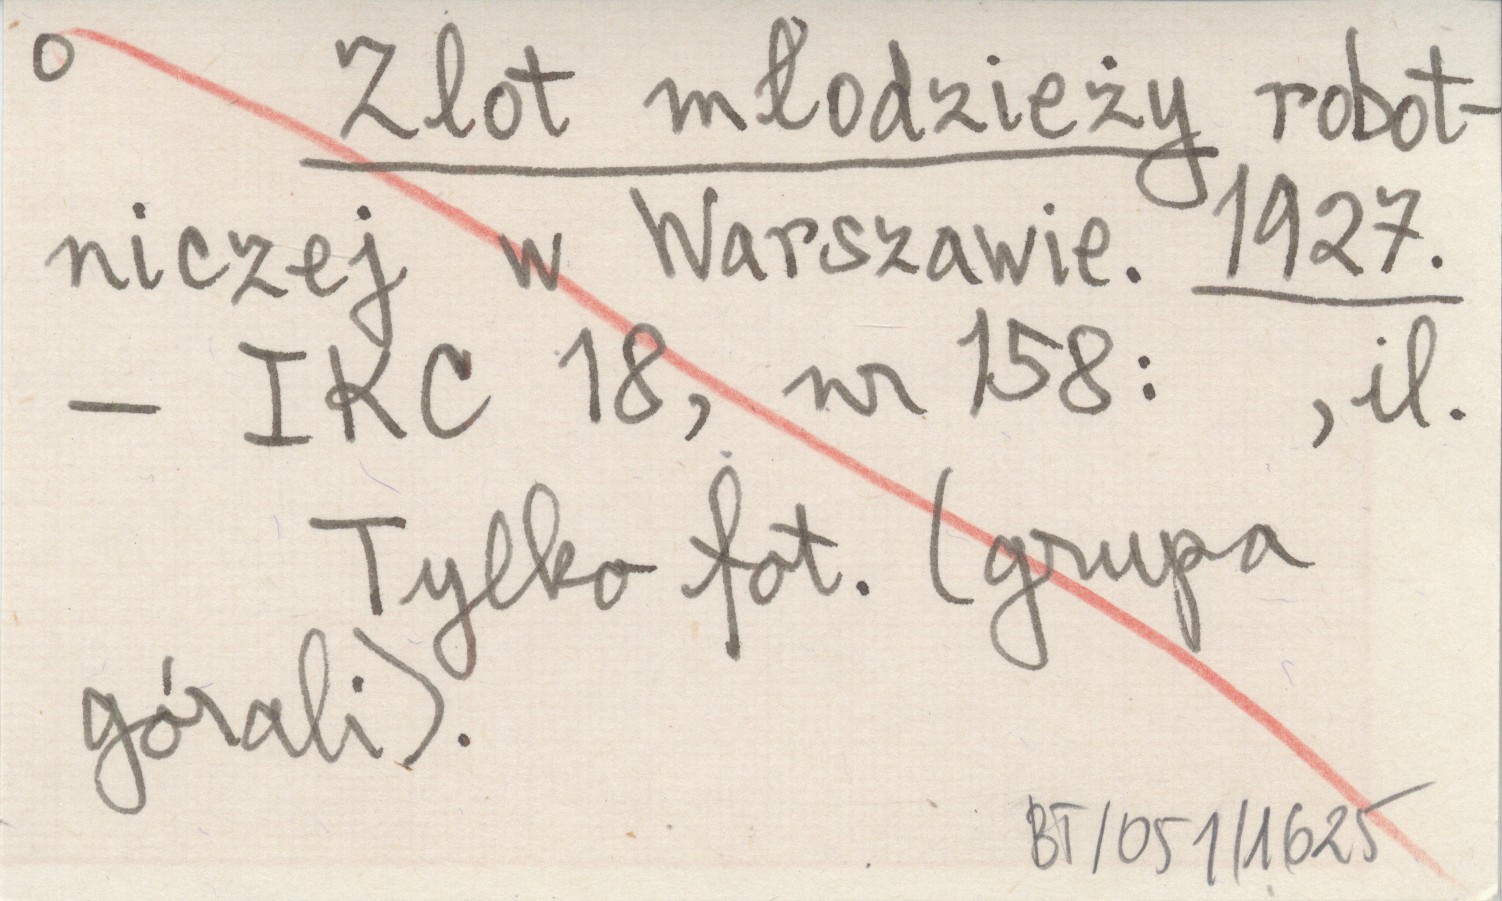 o Zlot młodzieży robot-
niczej w Warszawie. 1927.
— IKC 18, nr 158: , il.
Tylko fot. (grupa
górali).
BT/051/1625